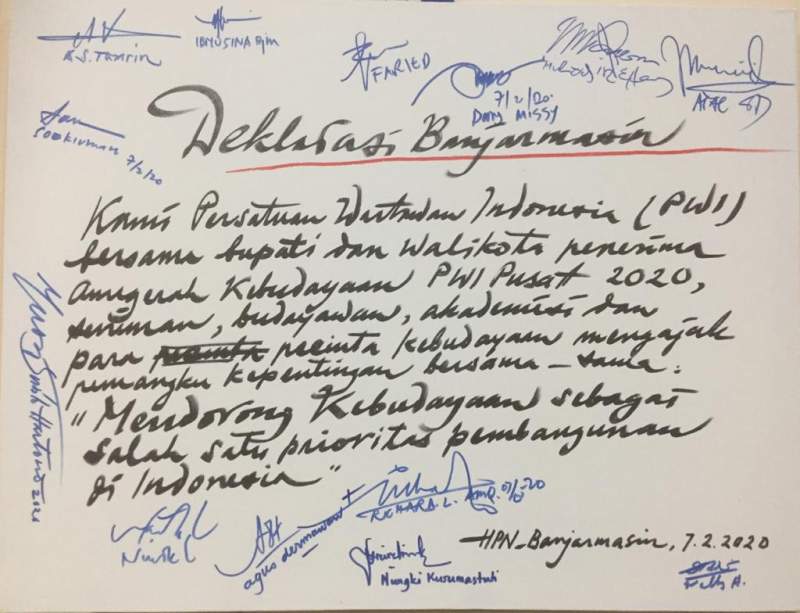 A.S. Tamrin
IBNUSINA Bjm
FARIED
7/2/20.
Dany Missy
ATAL SD
7/2/20
Deklarasi Banjarmasin
Kami Persatuan Wartawan Indonesia (PWI)
bersama bupati dan walikota penerima
Anugerah Kebudayaan PWI Pusat 2020,
seniman, budayawan, akademisi dan
para pecinta pecinta kebudayaan mengajak
pemangku kepentingan bersama-sama:
"Mendorong Kebudayaan sebagai
salah satu prioritas pembangunan
di Indonesia"
Yusuf Susilo Hartono 2020
Ninok L
agus dermawan T
RICHARD. L.
Nungki Kusumastuti
HPN-Banjarmasin, 7.2.2020